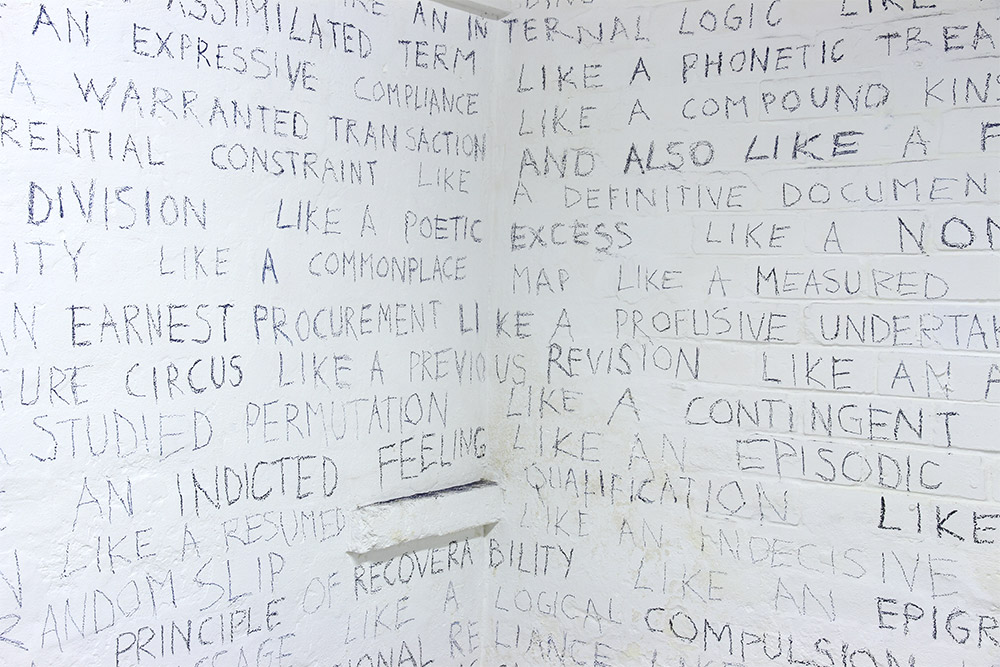 AN INTERNAL LOGIC LIKE
ASSIMILATED TERM LIKE A PHONETIC TREA
AN EXPRESSIVE COMPLIANCE LIKE A COMPOUND KIN
A WARRANTED TRANSACTION AND ALSO LIKE A F
RENTIAL CONSTRAINT LIKE A DEFINITIVE DOCUMEN
DIVISION LIKE A POETIC EXCESS LIKE A NON
LITY LIKE A COMMONPLACE MAP LIKE A MEASURED
AN EARNEST PROCUREMENT LIKE A PROFUSIVE UNDERTAK
TURE CIRCUS LIKE A PREVIOUS REVISION LIKE AN A
A STUDIED PERMUTATION LIKE A CONTINGENT
AN INDICTED FEELING LIKE AN EPISODIC
LIKE A RESUMED QUALIFICATION LIKE
RANDOM SLIP LIKE AN INDECISIVE
PRINCIPLE OF RECOVERABILITY LIKE AN EPIGR
SSAGE LIKE A LOGICAL COMPULSION
IONAL RELIANCE LIKE